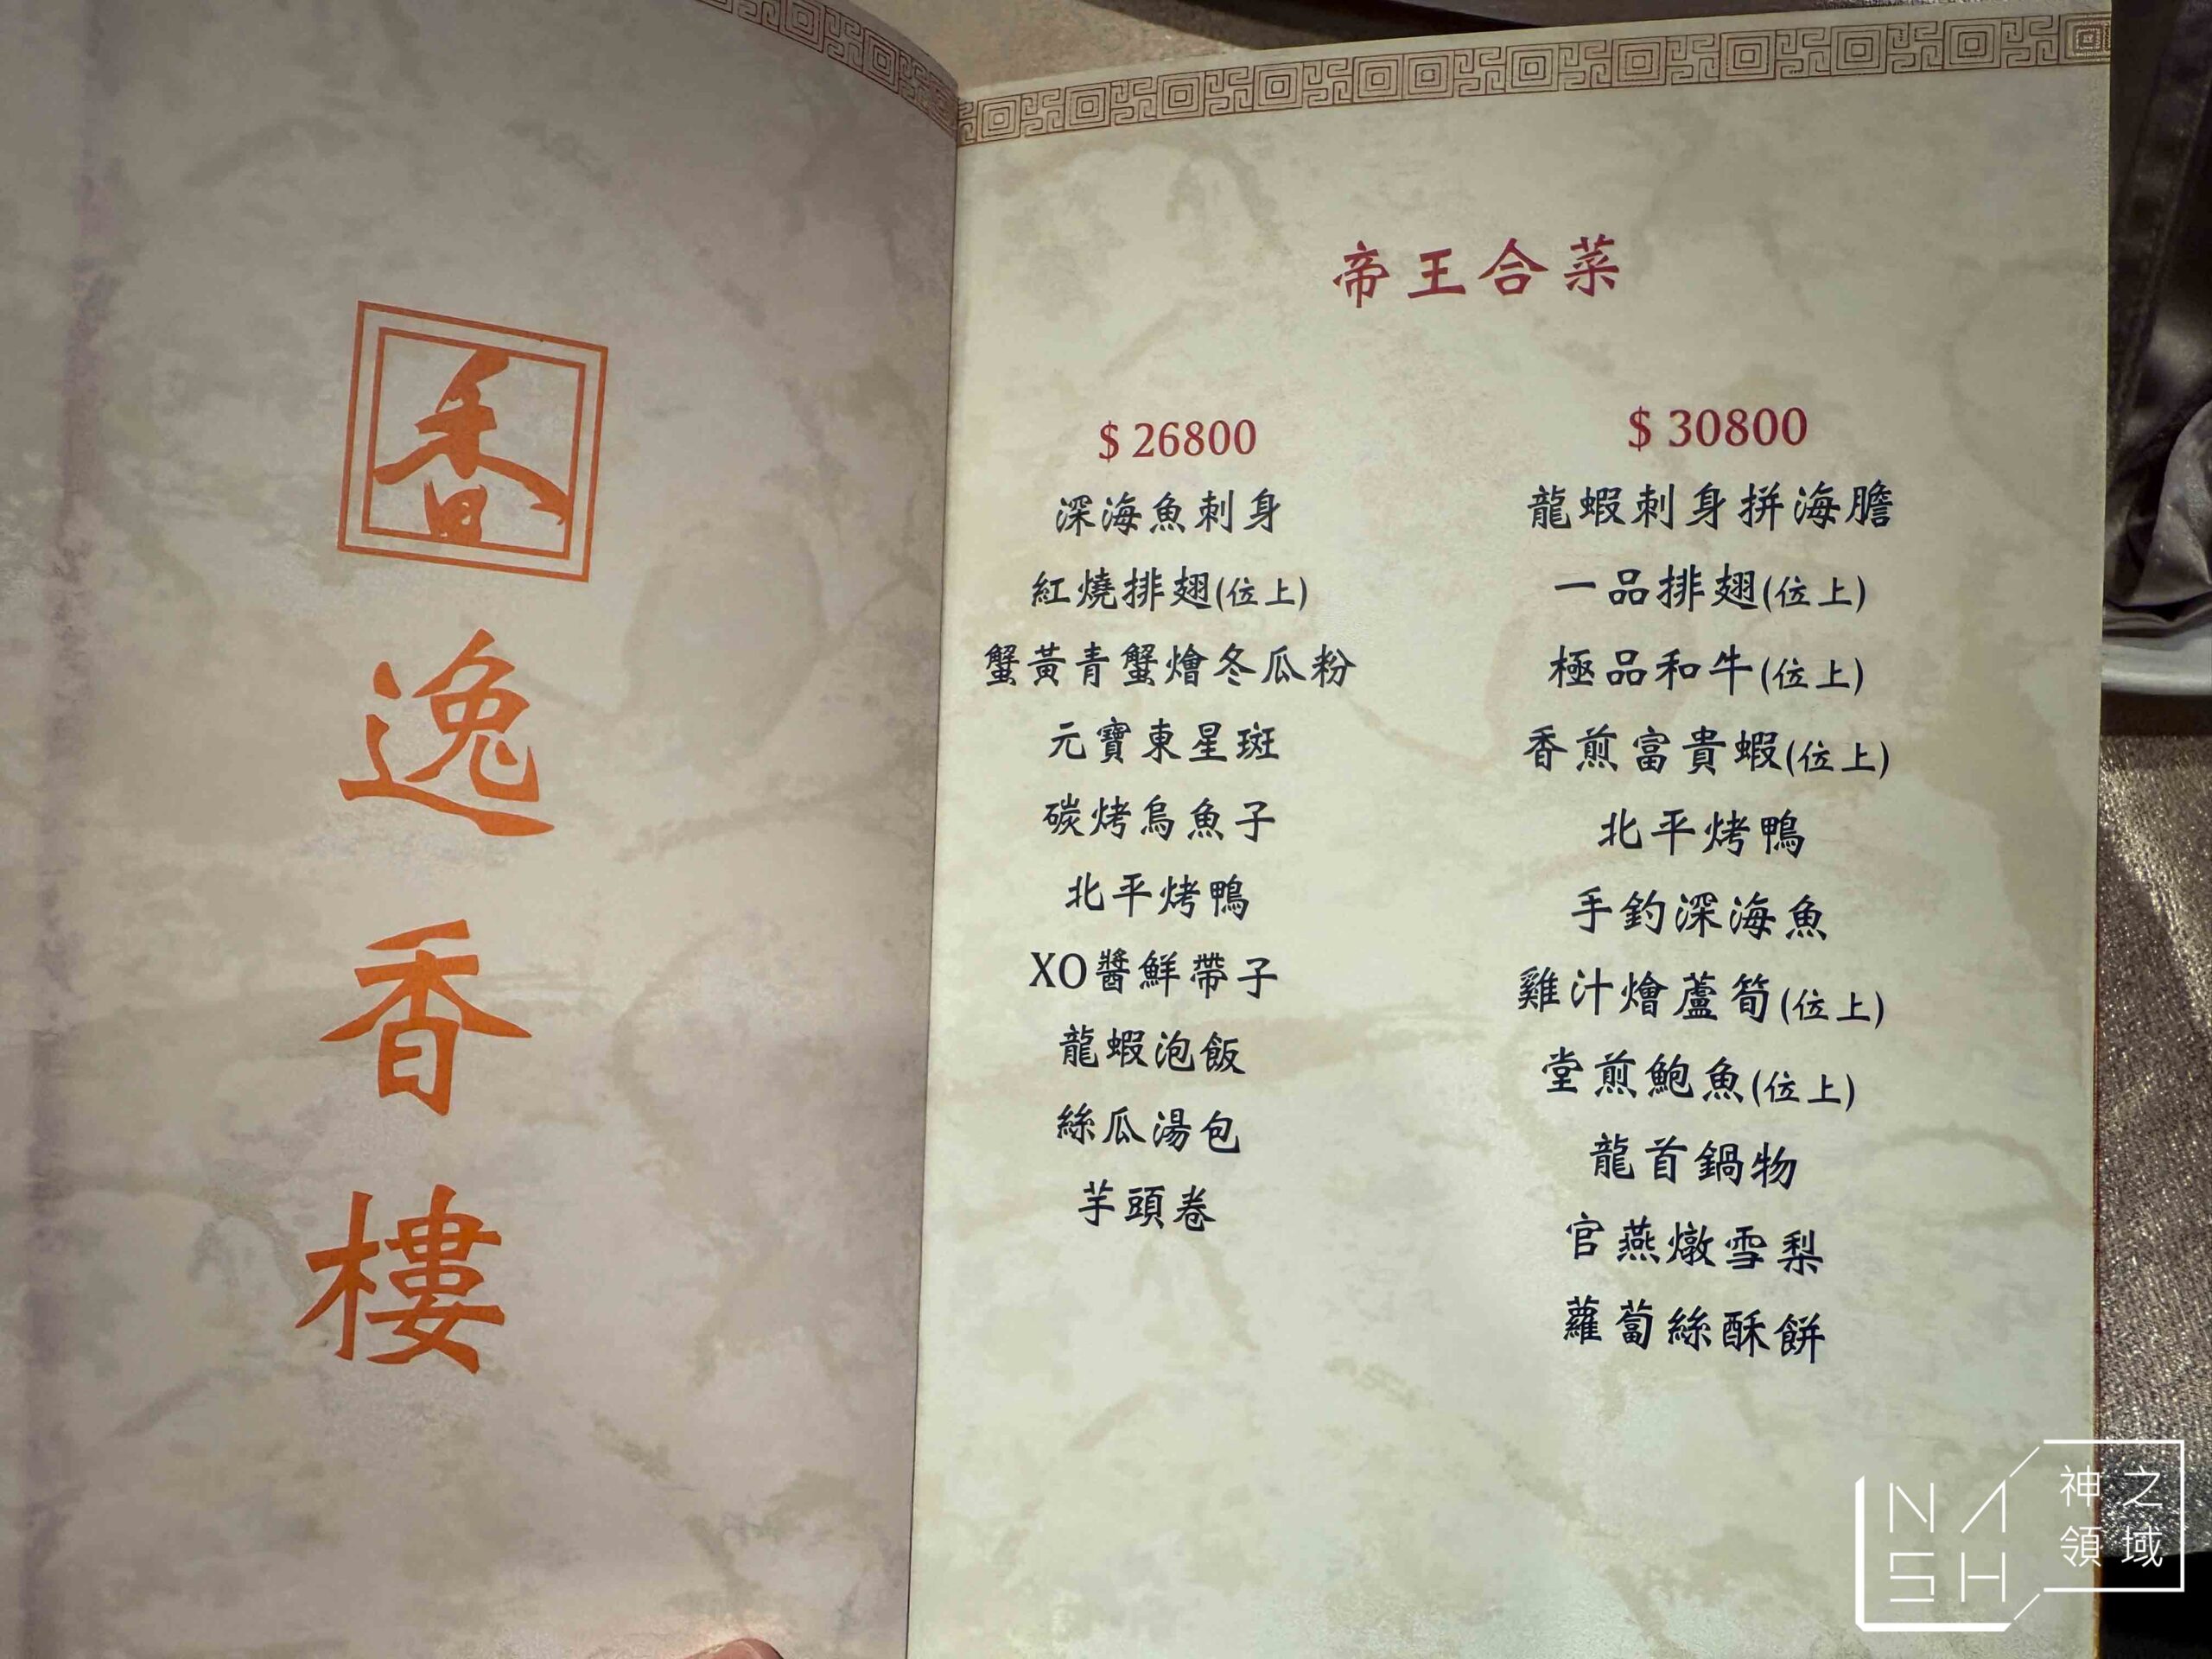 香
逸
香
樓
帝王合菜
$ 26800
深海魚刺身
紅燒排翅(位上)
蟹黃青蟹燴冬瓜粉
元寶東星斑
碳烤烏魚子
北平烤鴨
XO醬鮮帶子
龍蝦泡飯
絲瓜湯包
芋頭卷
$ 30800
龍蝦刺身拼海膽
一品排翅(位上)
極品和牛(位上)
香煎富貴蝦(位上)
北平烤鴨
手釣深海魚
雞汁燴蘆筍(位上)
堂煎鮑魚(位上)
龍首鍋物
官燕燉雪梨
蘿蔔絲酥餅
NASH
神之
領域